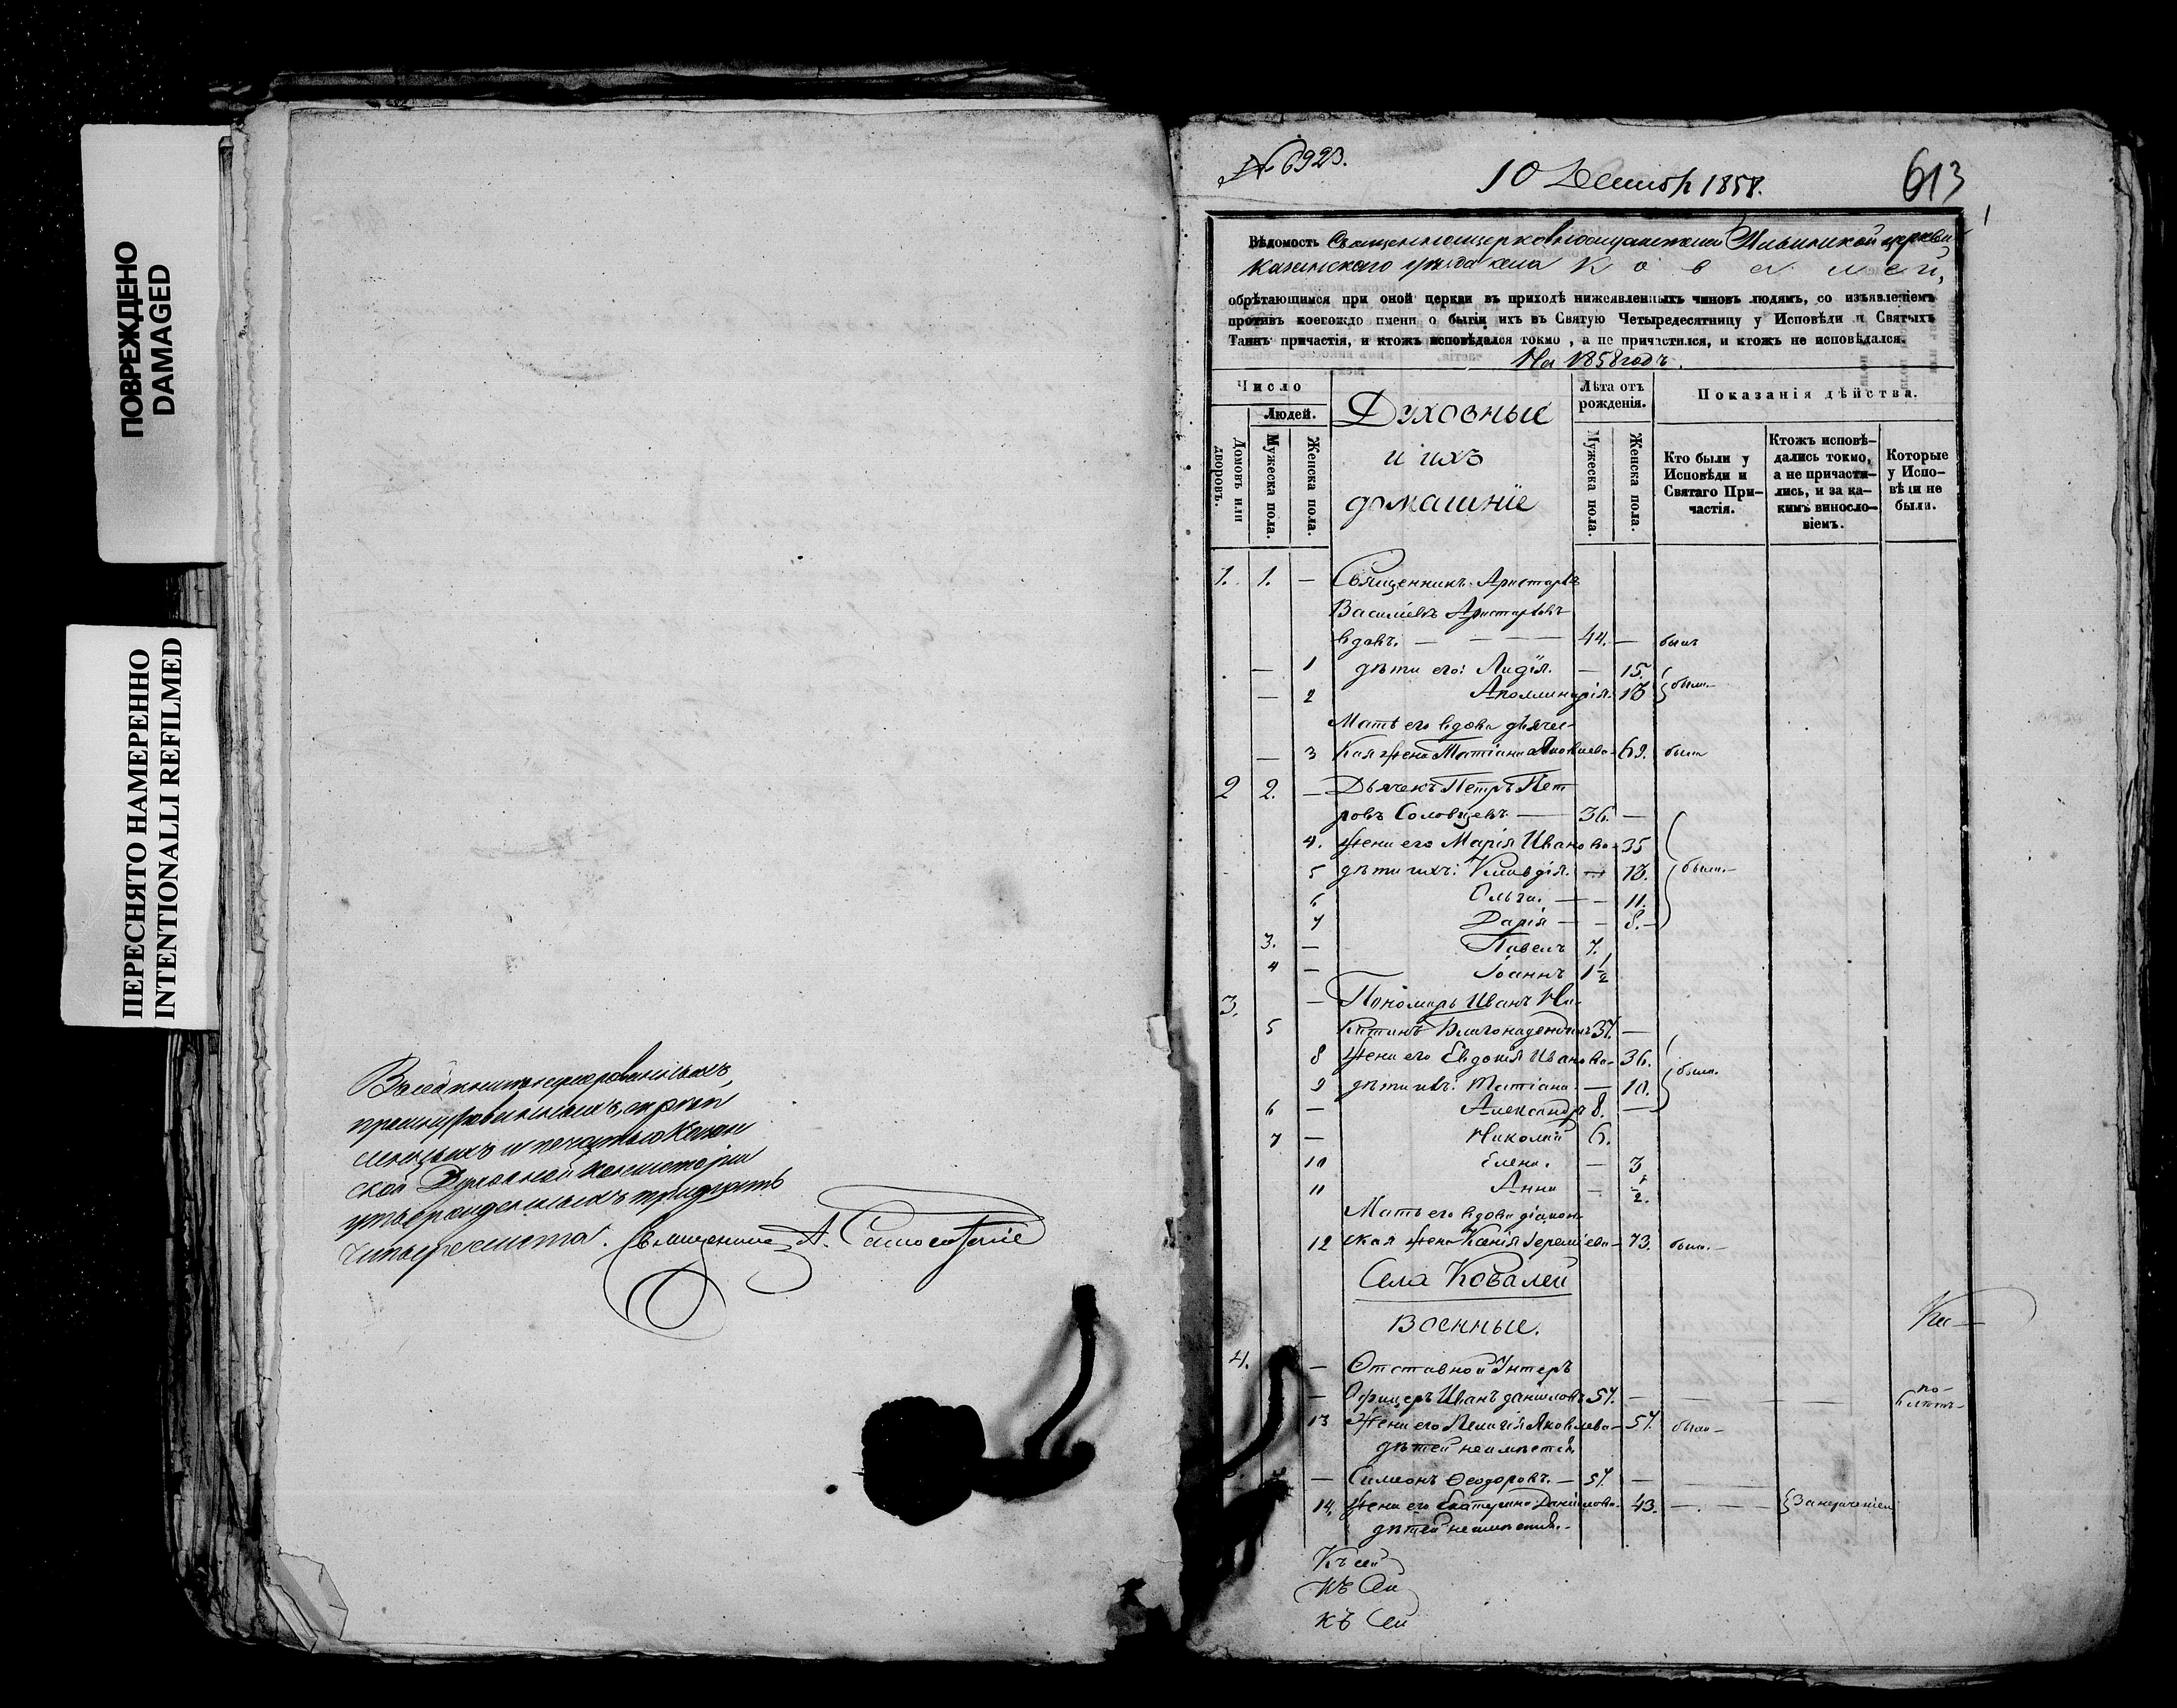 ПОВРЕЖДЕНО
DAMAGED
ПЕРЕСНЯТО НАМЕРЕННО
INTENTIONALLI REFILMED
и печатью Казан
ской Духовной Консисторіи
утвержденныхъ тридцать
четыре листа. Священникъ А.
№ 6923.
10 1858.
613
1
Вѣдомость Ильинской церкви
Казанскаго уѣзда села Ковалей,
обрѣтающимся при оной церкви въ приходѣ нижеявленныхъ чиновъ людямъ, со изъявленіемъ
противъ коегождо имени о бытіи ихъ въ Святую Четыредесятницу у Исповѣди и Святыхъ
Таинъ причастія, и ктожъ исповѣдался токмо, а не причастился, и ктожъ не исповѣдался.
На 1858 годъ.
Число
Людей.
Домовъ или дворовъ.
Мужеска пола.
Женска пола.
Духовные
и ихъ
домашніе
Лѣта отъ рожденія.
Мужеска пола.
Женска пола.
Показанія дѣйства.
Кто были у Исповѣди и Святаго Причастія.
Ктожъ исповѣдались токмо, а не причастились, и за какимъ винословіемъ.
Которые у Исповѣди не были.
1. 1. — Священникъ Аристархъ
Василіевъ Аристарховъ
вдовъ. — 44. — былъ
— 1 дѣти его: Лидія. — 15.
— 2 Аполлинарія. 13 были
Мать его вдова дьячес-
— 3 кая жена Татіана Яковлева 69. была
2 2. — Дьячекъ Петръ Пет
ровъ Соловцевъ — 36. —
4. Жена его Марія Иванова 35
5 дѣти ихъ: Клавдія. — 13. были
6 Ольга. — — 11.
7 Дарія — — 8.
3. — Павелъ 7.
4 — Іоаннъ 1 1/2
3. — Пономарь Иванъ Ни-
5 китинъ Благонадеждинъ 37. —
8 Жена его Евдокія Иванова 36.
9 дѣти ихъ: Татіана — 10. были
6 — Александръ 8. —
7 — Николай 6.
10 Елена. — 3
11 Анна — 1/2.
Мать его вдова діакон-
12 ская жена Ксенія Іереміева 73. была
Села Ковалей
Военные.
4. — Отставной Унтеръ
— Офицеръ Иванъ Даниловъ 57. —
13 Жена его Пелагія Яковлева 57. была
дѣтей неимѣетъ
— Симеонъ Ѳеодоровъ. — 57. —
14. Жена его Екатерина Даниилова 43. —
дѣтей неимѣетъ
Къ сей
къ Сей
къ Сей